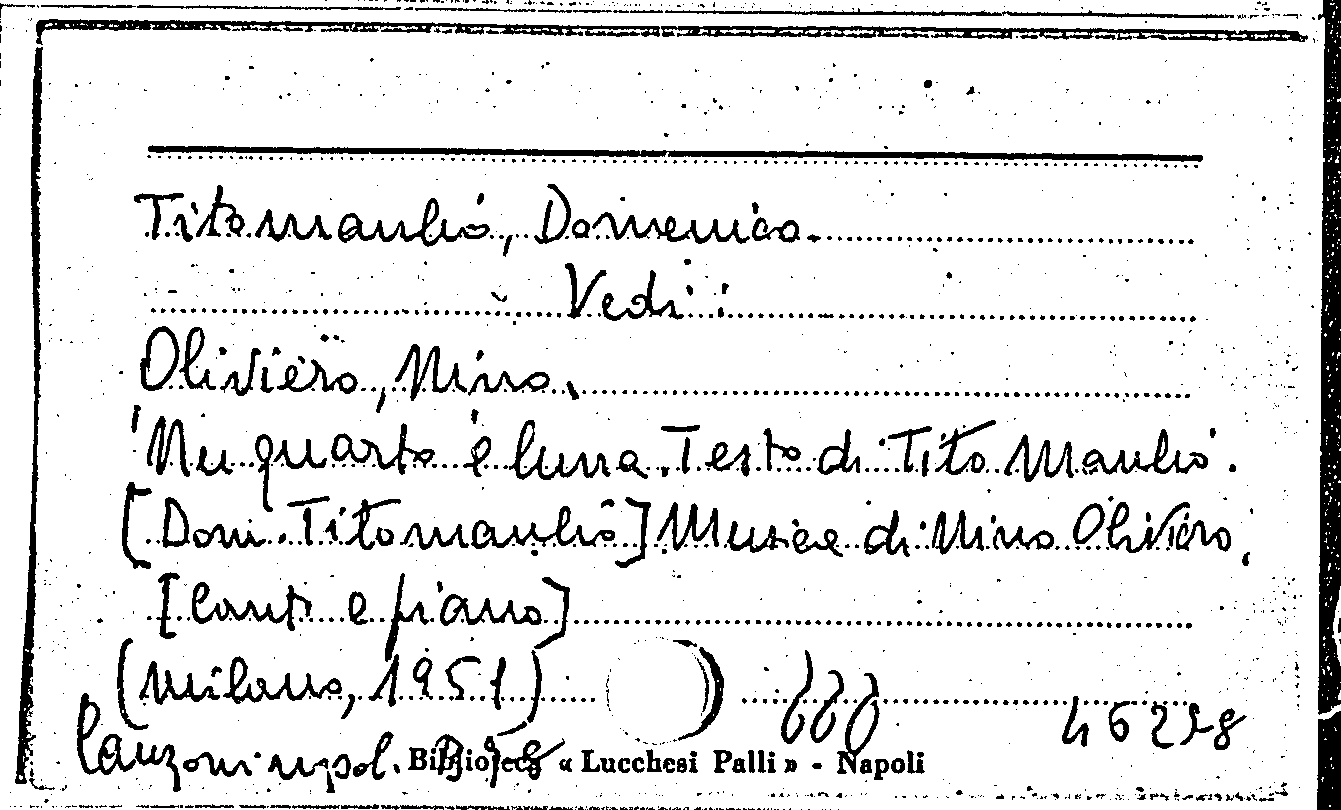 Titomanlio, Domenico.
Vedi:
Oliviero, Nino.
'Nu quarto 'e luna. Testo di Tito Manlio.
[Dom. Titomanlio] Musica di Nino Oliviero,
[Canto e piano]
(Milano, 1951)
Canzoni napol.
Biblioteca « Lucchesi Palli » - Napoli